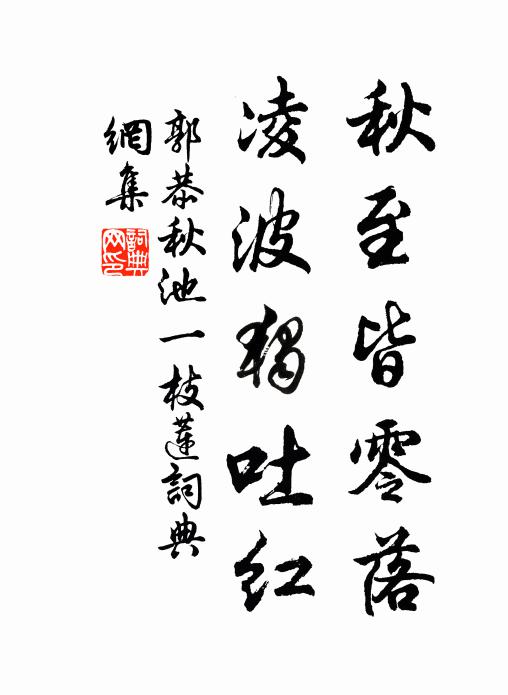 秋至皆零落
凌波独吐红
郭恭秋池一枝蓮詞典
網集
詞典
网印